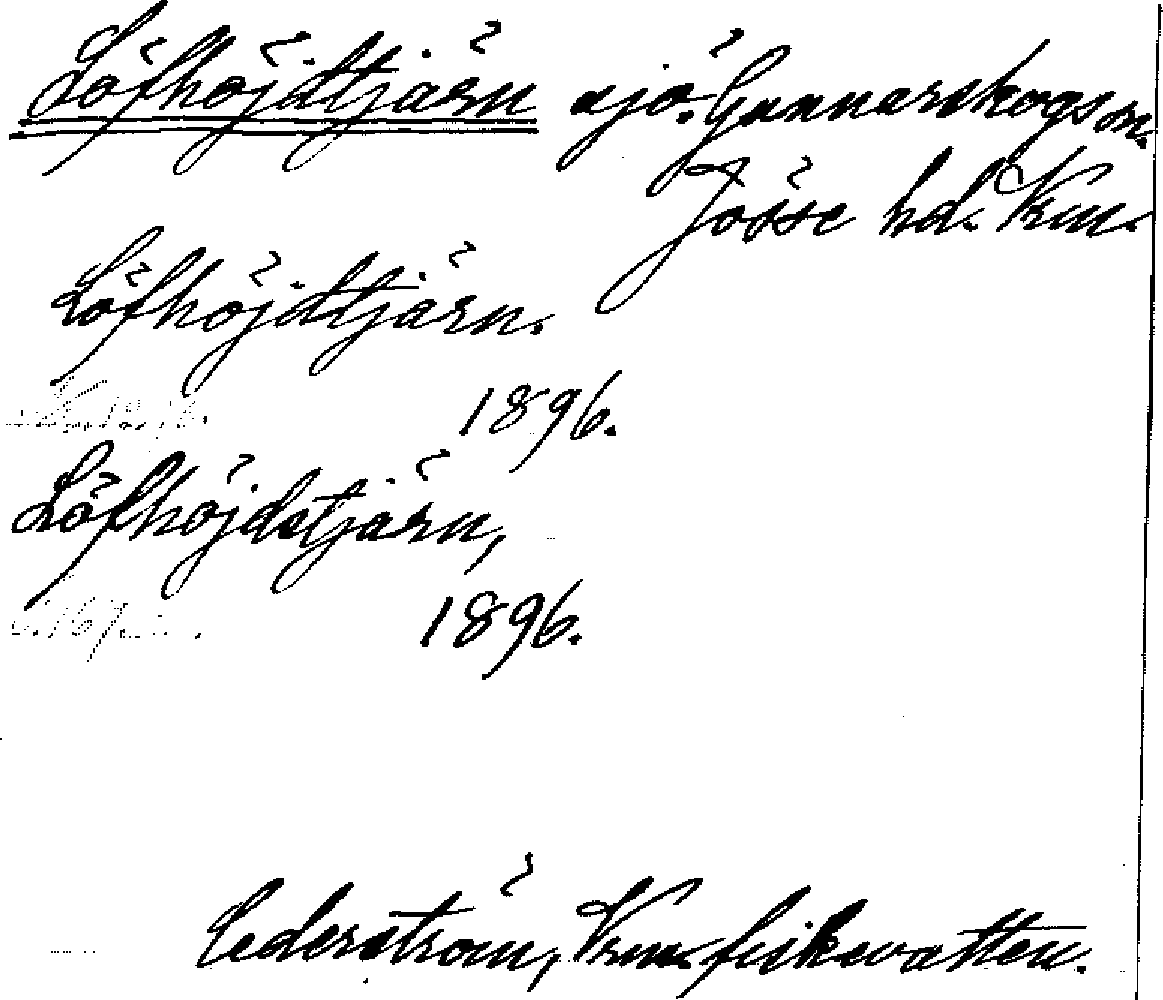 Löfhöjdtjärn sjö. Gunnarskogs sn.
Jösse hd. Vrm.
Löfhöjdtjärn.
1896.
Löfhöjdstjärn,
1896.
Cederström, Vrm. fiskevatten.